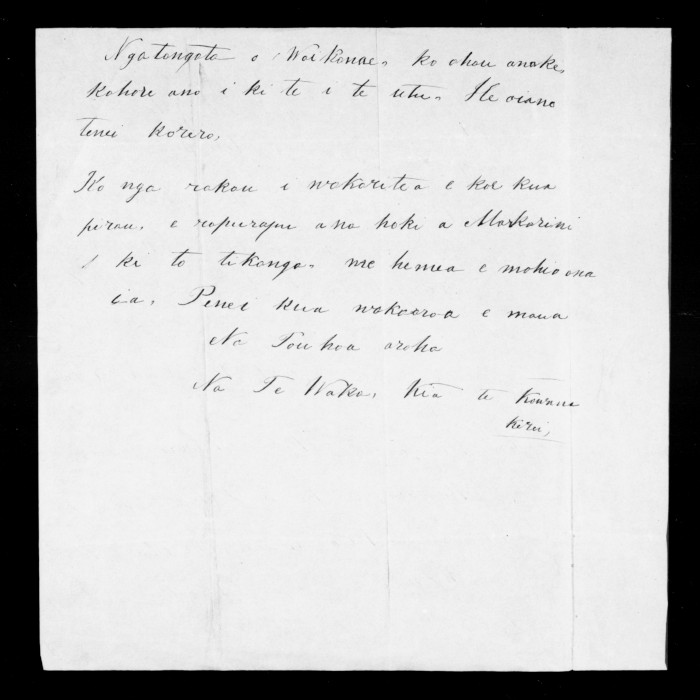 Ngatangata o Waikanae, ko ahau anake,
kahore ano i ki te i te utu. Heoiano
tenei korero,
Ko nga rakau i wakaritea e koe kua
pirau, e rapurapu ana hoki a Makarini
ki to tikanga, me hemea e mohio ana
ia, Penei kua wakaaroa e maua
Na Tou hoa aroha
Na Te Waka, kia te Kawana
kirei,